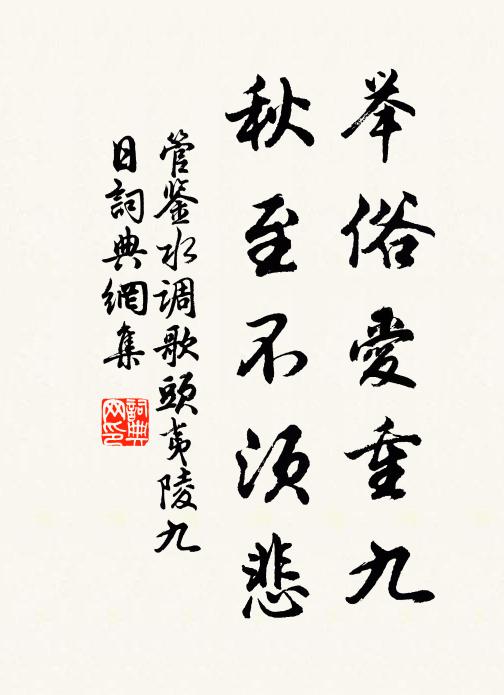 举俗愛重九
秋至不须悲
管鉴水调歌頭夷陵九
日詞典網集
詞典
网印